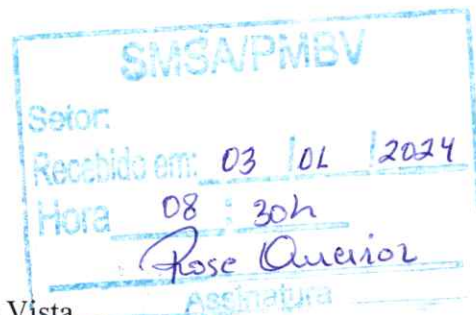 SMSA/PMBV
Setor:
Recebido em: 03 / 01 / 2024
Hora 08 : 30h
Rose Queiroz
Assinatura
Vista